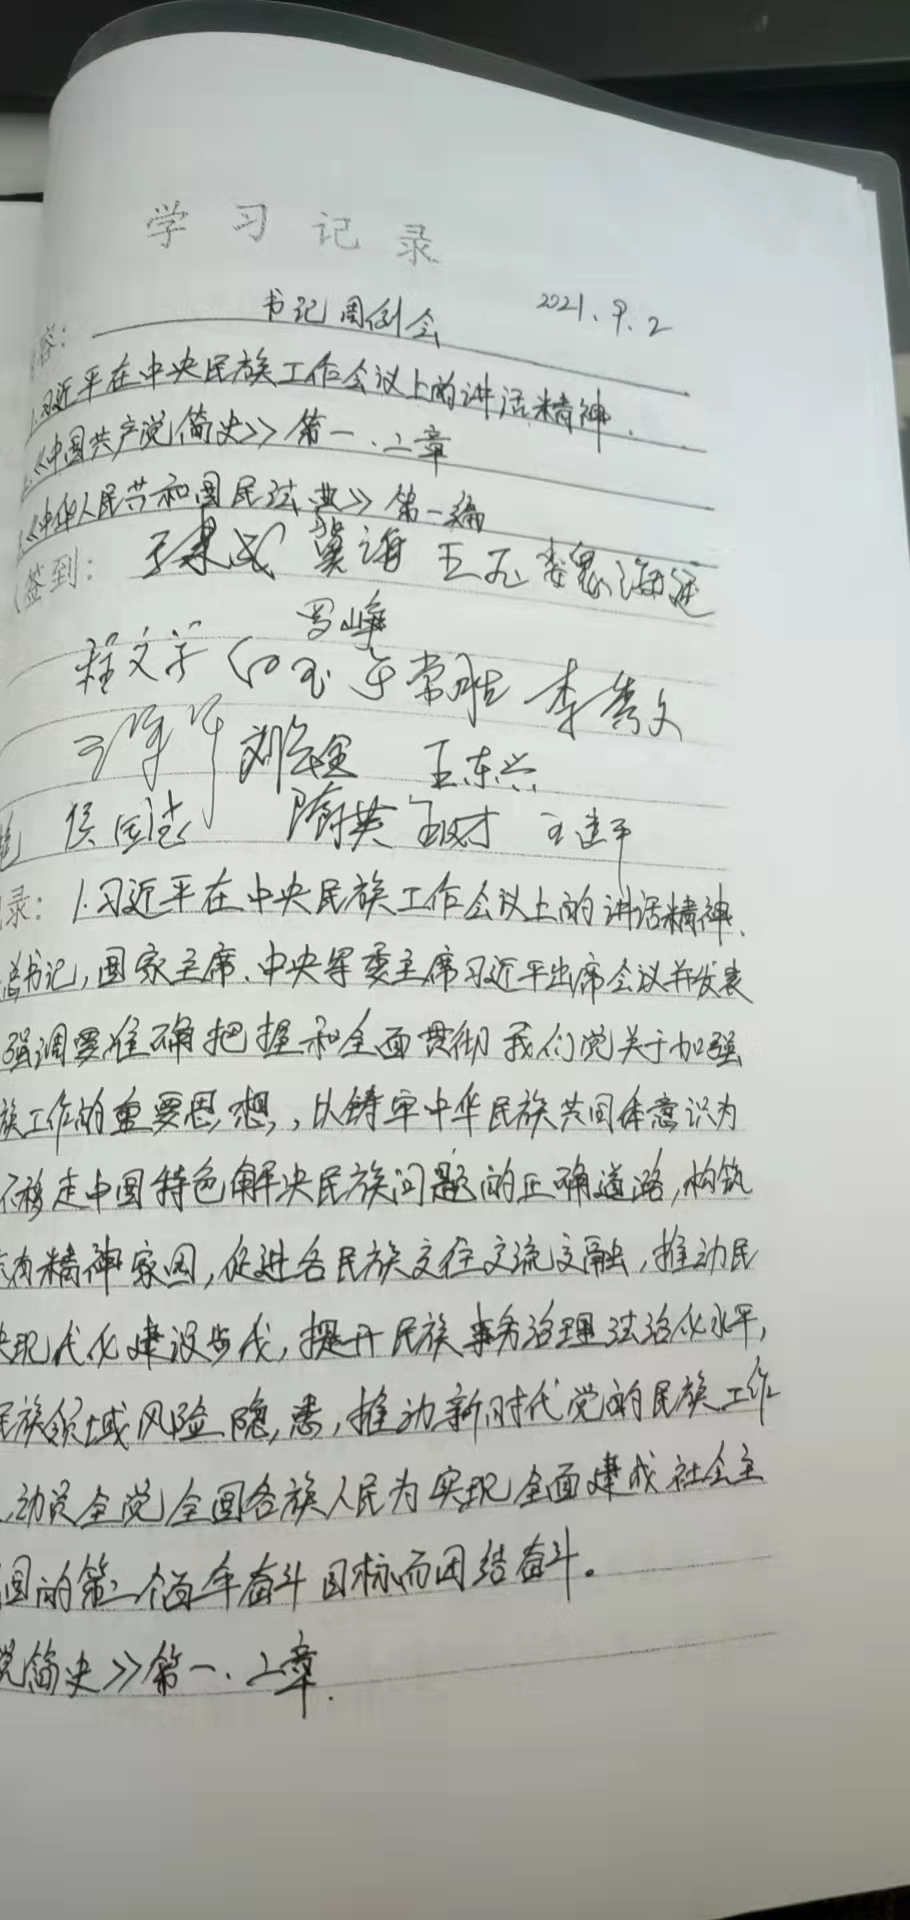 学习记录
书记周例会 2021.9.2
容：
1.习近平在中央民族工作会议上的讲话精神.
《中国共产党简史》》第一、二章
《中华人民共和国民法典》》第一编
签到： 冀海 王 海
罗峰
程文 常胜 李秀文
刘 王东兴
侯国 隋树英 王建平
录：1.习近平在中央民族工作会议上的讲话精神、
总书记，国家主席、中央军委主席习近平出席会议并发表
强调要准确把握和全面贯彻我们党关于加强
族工作的重要思想，以铸牢中华民族共同体意识为
不移走中国特色解决民族问题的正确道路，构筑
有精神家园，促进各民族交往交流交融，推动民
现代化建设步伐，提升民族事务治理法治化水平，
民族领域风险隐患，推动新时代党的民族工作
动员全党全国各族人民为实现全面建成社会主
国的第二个百年奋斗目标而团结奋斗。
党简史》》第一、二章.